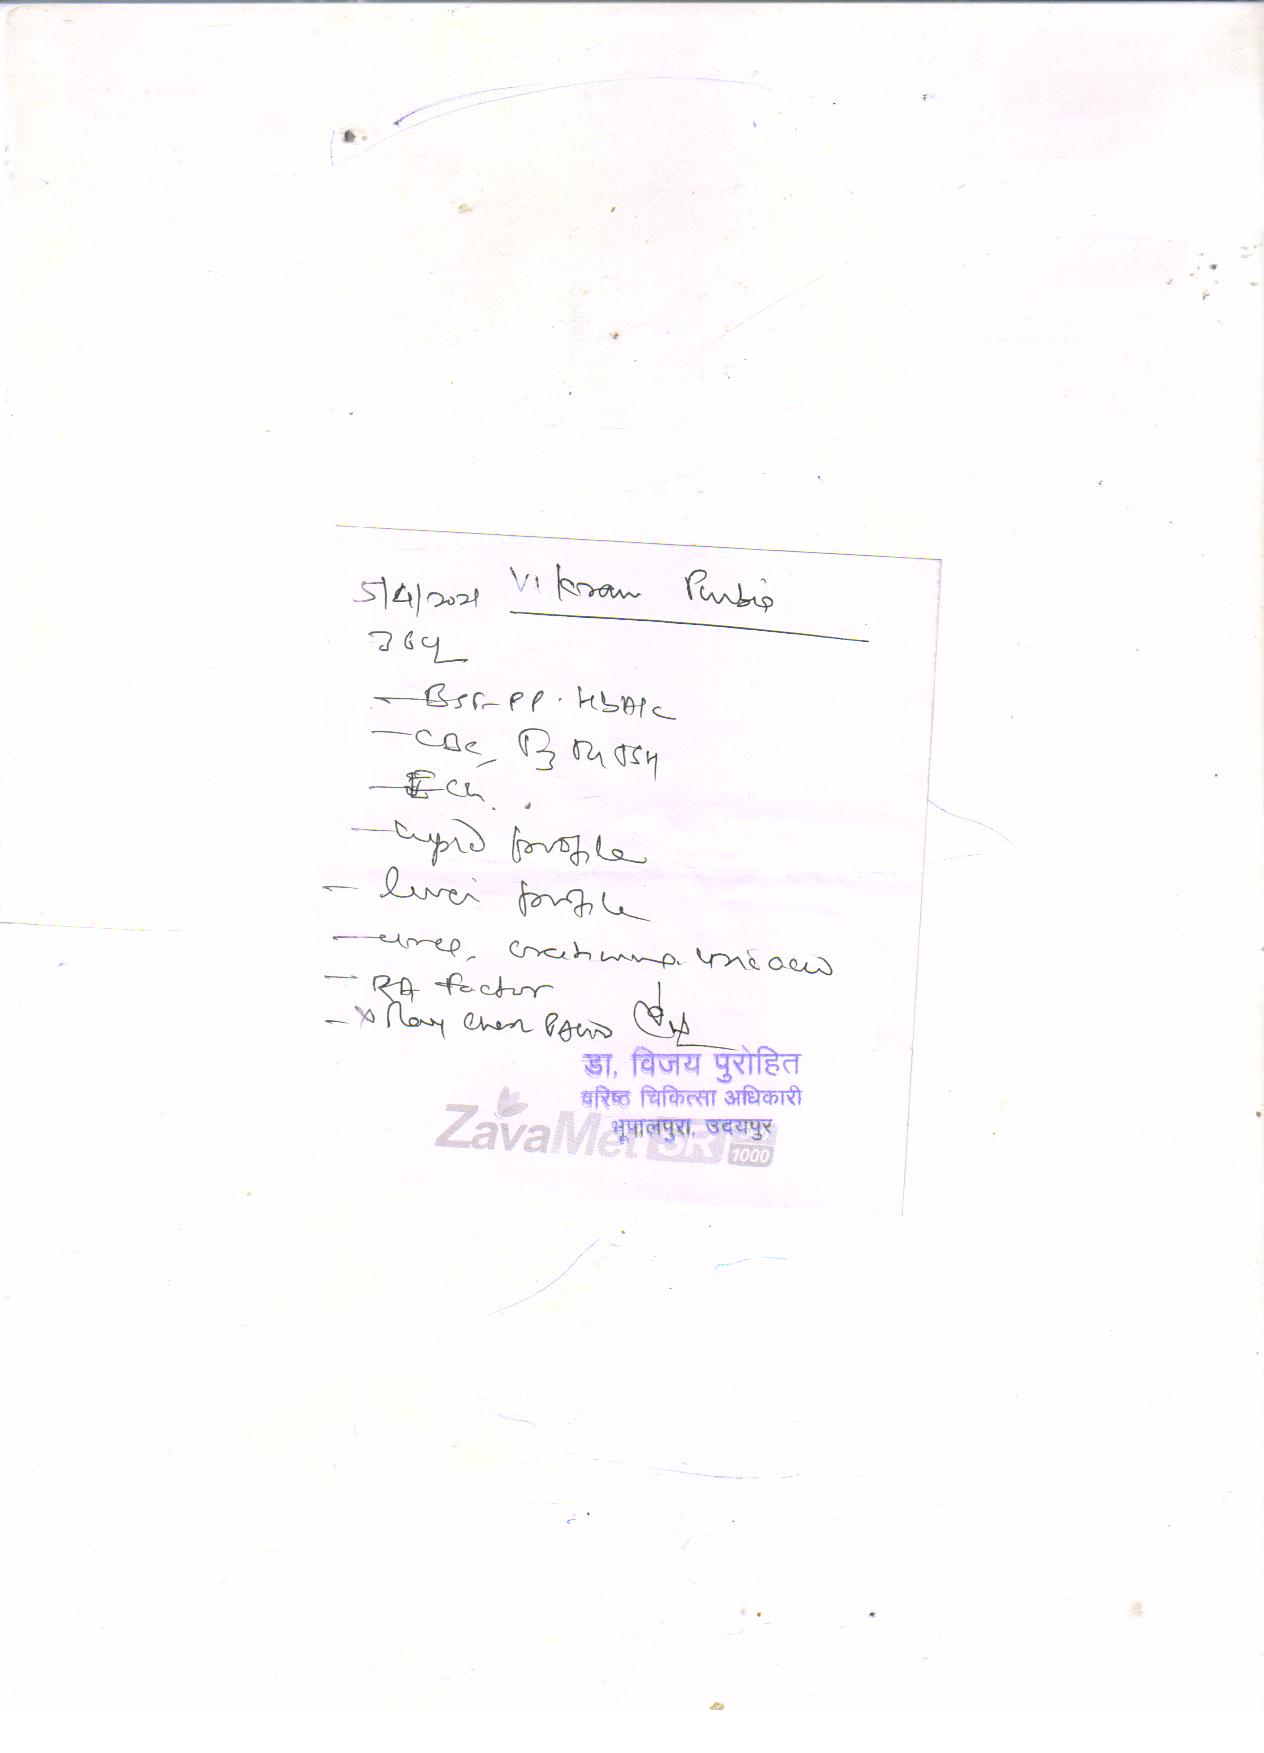 5/4/2021 Vikram Purbia
36y
- BSF - PP . HbA1c
- CBC, T3 T4 TSH
- ECG
- Lipid profile
- Liver profile
- urea, creatinine. Uric acid
- RA factor
- X Ray Chest PA View
डा. विजय पुरोहित
वरिष्ठ चिकित्सा अधिकारी
भूपालपुरा, उदयपुर
ZavaMet
1000